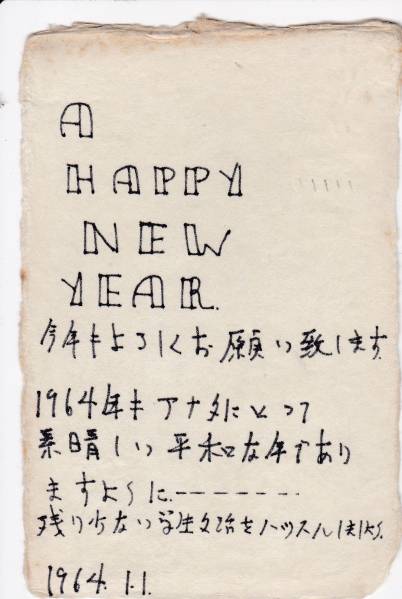 A
HAPPY
NEW
YEAR.
今年もよろしくお願い致します.
1964年もアナタにとって
素晴しい平和な年であり
ますように.-------
残り少ない学生生活をハッスルしましよう.
1964.1.1.